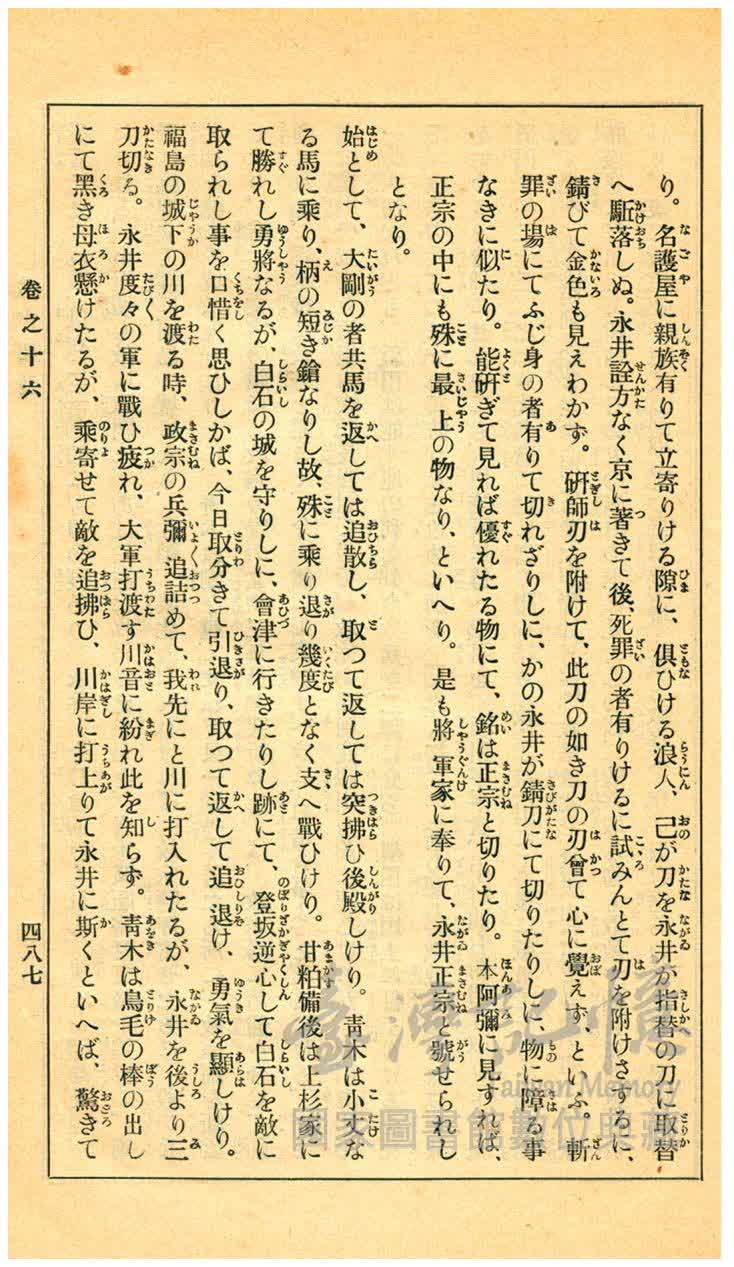 り。名護屋に親族有りて立寄りける隙に、俱ひける浪人、己が刀を永井が指替の刀に取替
へ駈落しぬ。永井詮方なく京に著きて後、死罪の者有りけるに試みんとて刃を附けさするに、
錆びて金色も見えわかず。硏師刃を附けて、此刀の如き刀の刃曾て心に覺えず、といふ。斬
罪の場にてふじ身の者有りて切れざりしに、かの永井が錆刀にて切りたりしに、物に障る事
なきに似たり。能硏ぎて見れば優れたる物にて、銘は正宗と切りたり。本阿彌に見すれば、
正宗の中にも殊に最上の物なり、といへり。是も將軍家に奉りて、永井正宗と號せられし
となり。
始として、大剛の者共馬を返しては追散し、取つて返しては突拂ひ後殿しけり。靑木は小丈な
る馬に乘り、柄の短き鎗なりし故、殊に乘り退り幾度となく支へ戰ひけり。甘粕備後は上杉家に
て勝れし勇將なるが、白石の城を守りしに、會津に行きたりし跡にて、登坂逆心して白石を敵に
取られし事を口惜く思ひしかば、今日取分きて引退り、取つて返して追退け、勇氣を顯しけり。
福島の城下の川を渡る時、政宗の兵彌追詰めて、我先にと川に打入れたるが、永井を後より三
刀切る。永井度々の軍に戰ひ疲れ、大軍打渡す川音に紛れ此を知らず。靑木は鳥毛の棒の出し
にて黑き母衣懸けたるが、乘寄せて敵を追拂ひ、川岸に打上りて永井に斯くといへば、驚きて
卷之十六
四八七
臺灣記憶
Taiwan Memory
國家圖書館數位典藏